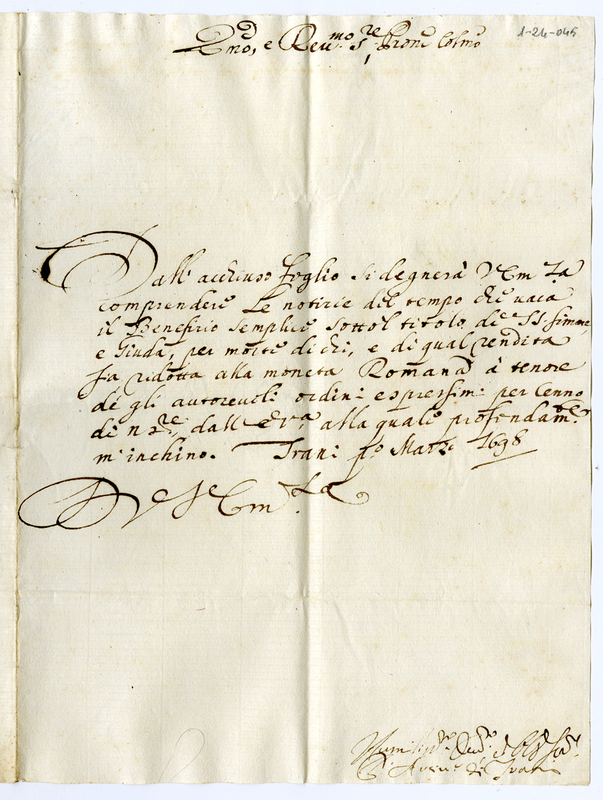 1-24-045
Em̃o, e Reu.mo S.re Prone Colmo
Dall' acchiuso foglio si degnerà V Em.za
comprendere le notizie del tempo che uaca
il Beneficio semplice sotto l titolo de SS. Simone,
e Giuda, per morte di chi, e di qual rendita
sia ridotta alla moneta Romana à tenore
de gli autoreuoli ordini espressimi per Cenno
di N. S.re dall' E. V.ra alla quale profondam.te
m'inchino. Trani p.o Marzo 1698
D V.e S.e Em.za
Humiliss.mo Deu.mo et Obl.mo Ser.e
L' Arciu.o di Trani